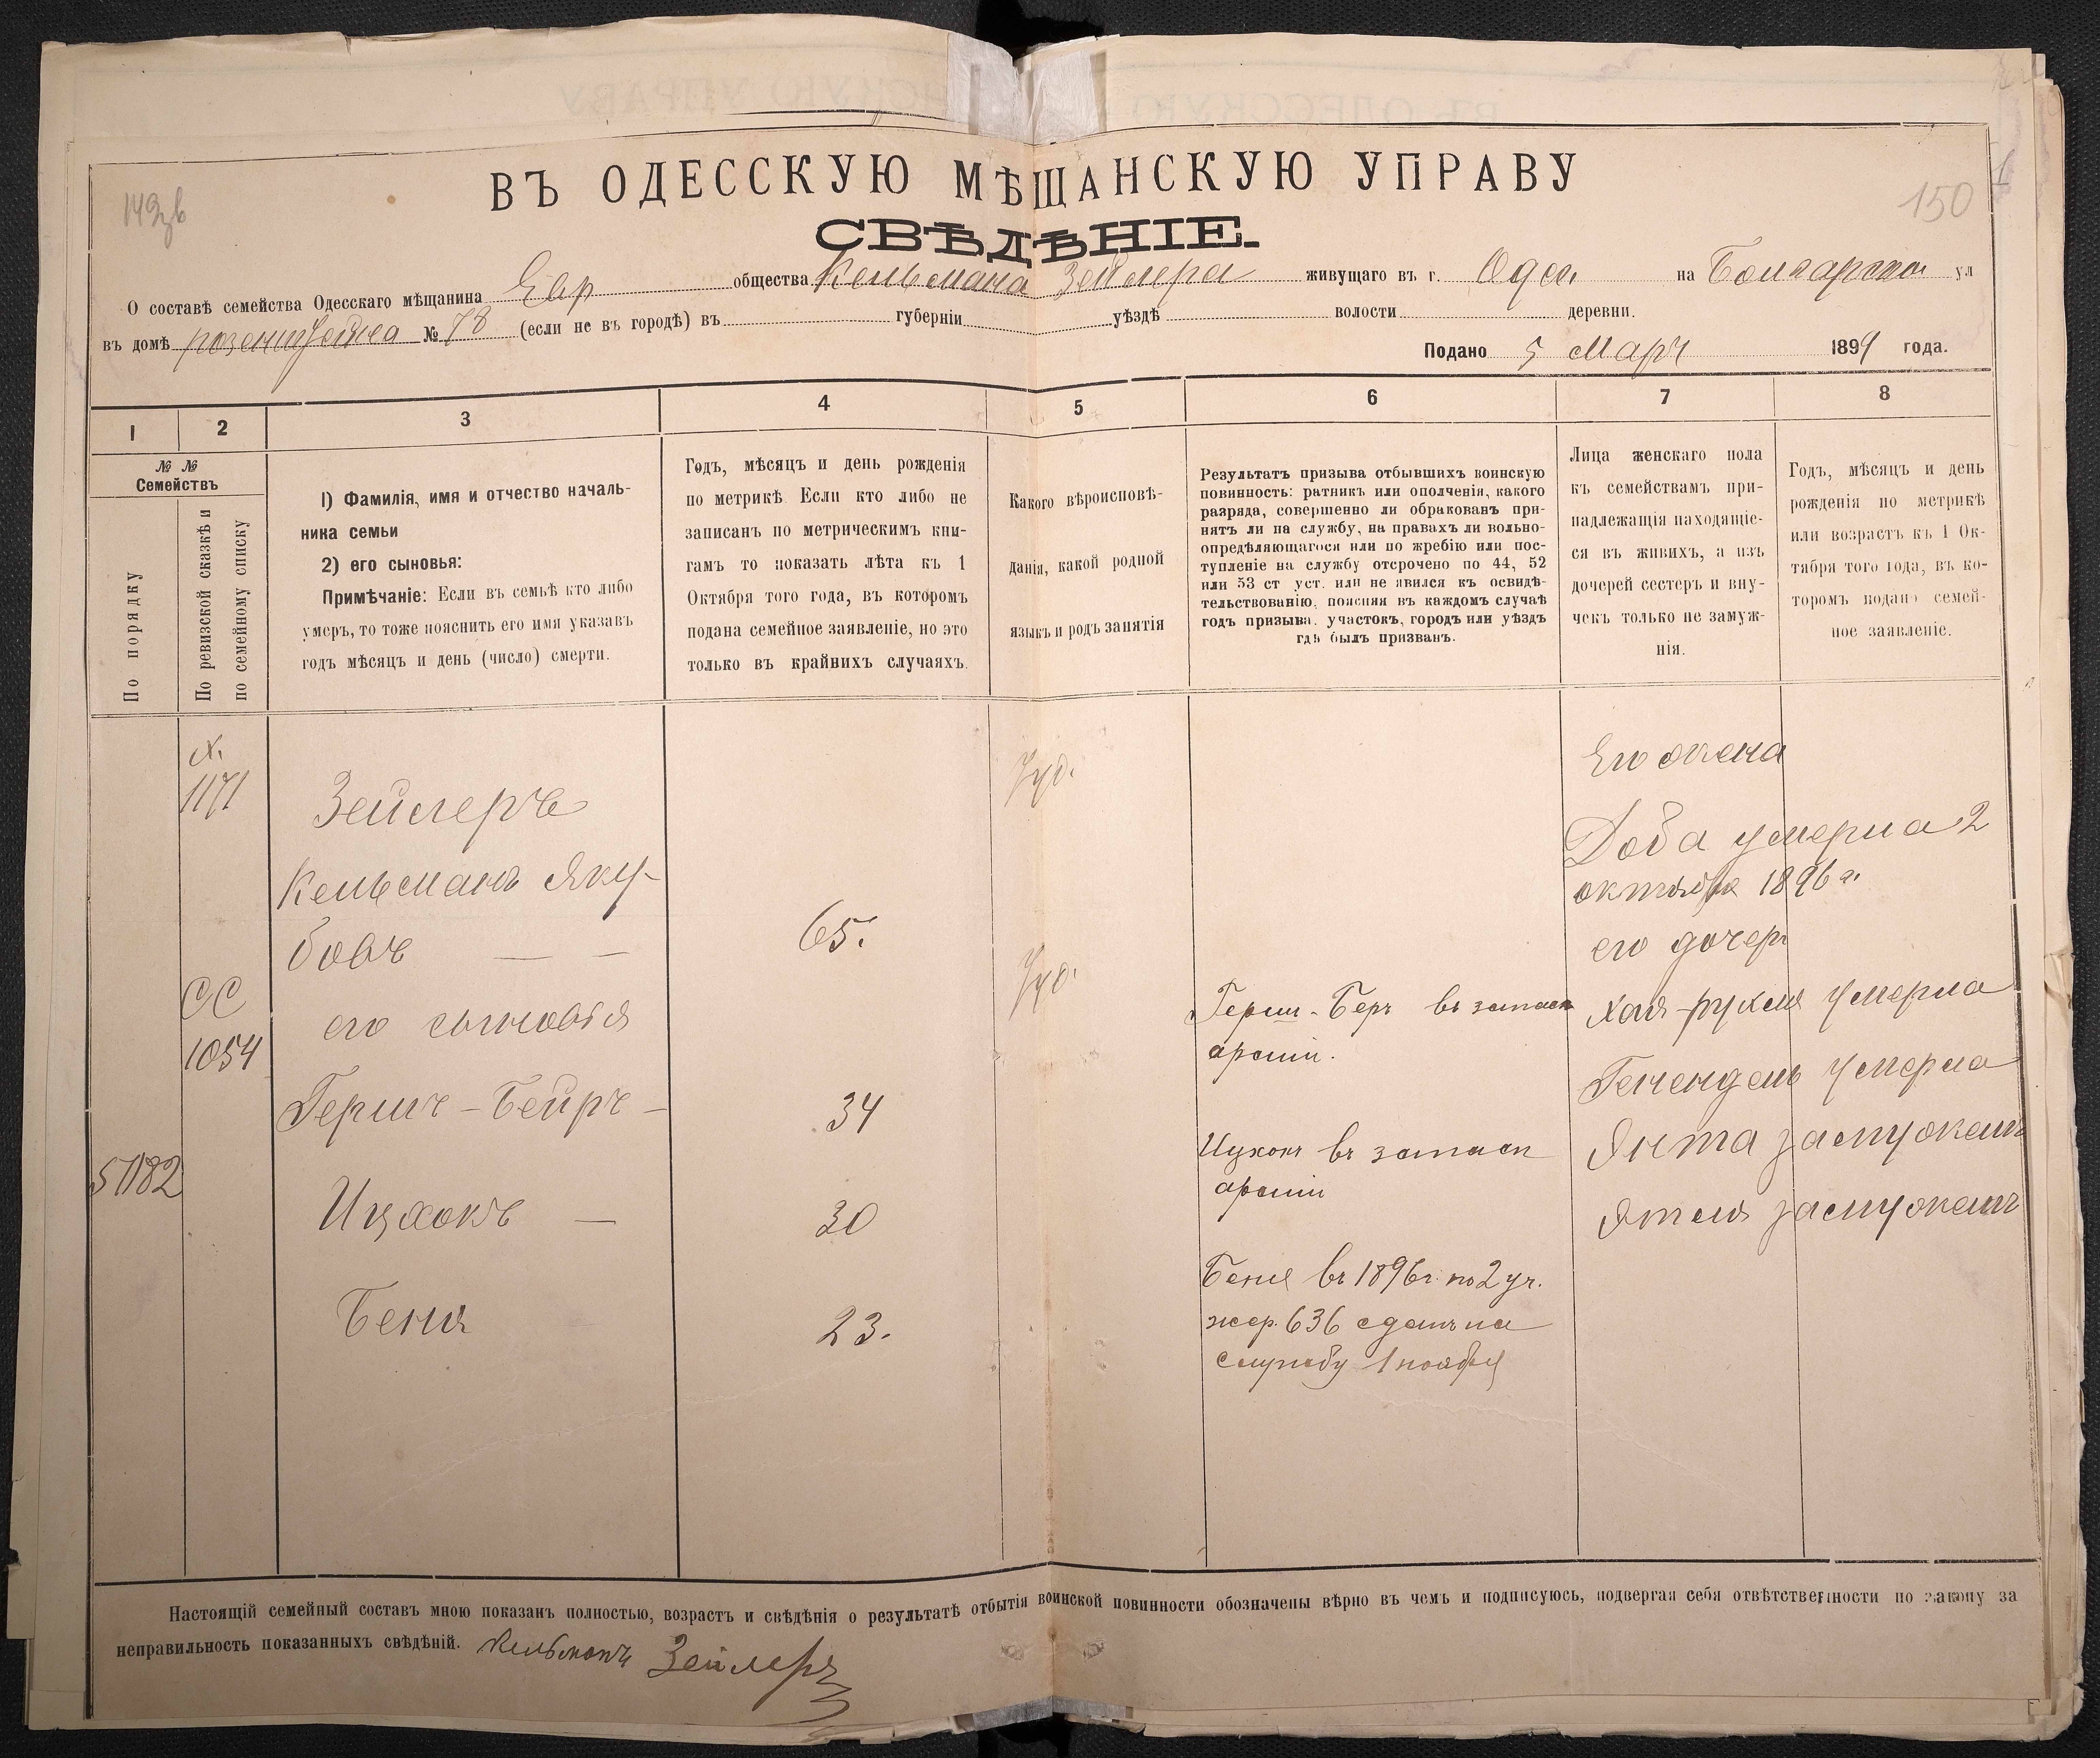 150
ВЪ ОДЕССКУЮ МѢЩАНСКУЮ УПРАВУ
СВѢДѢНІЕ.
О составѣ семейства Одесскаго мѣщанина Евр общества Кельмана Зейлера живущаго въ г. Одес. на Болгарской ул
въ домѣ № 78 (если не въ городѣ) въ губерніи уѣздѣ волости деревни.
Подано 5 Март 1899 года.
1 2 3 4 5 6 7 8
№ №
Семействъ
По порядку
По ревизской сказкѣ и
по семейному списку
1) Фамилія, имя и отчество началь-
ника семьи
2) его сыновья:
Примѣчаніе: Если въ семьѣ кто либо
умеръ, то тоже пояснить его имя указавъ
годъ мѣсяцъ и день (число) смерти.
Годъ, мѣсяцъ и день рожденія
по метрикѣ Если кто либо не
записанъ по метрическимъ кни-
гамъ то показать лѣта къ 1
Октября того года, въ которомъ
подана семейное заявленіе, но это
только въ крайнихъ случаяхъ.
Какого вѣроисповѣ-
данія, какой родной
языкъ и родъ занятія
Результатъ призыва отбывшихъ воинскую
повинность: ратникъ или ополченія, какого
разряда, совершенно ли обракованъ при-
нятъ ли на службу, на правахъ ли вольно-
опредѣляющагося или по жребію или пос-
тупленіе на службу отсрочено по 44, 52
или 53 ст уст. или не явился къ освидѣ-
тельствованію, поясняя въ каждомъ случаѣ
годъ призыва, участокъ, городъ или уѣздъ
гдѣ былъ призванъ.
Лица женскаго пола
къ семействамъ при-
надлежащія находящіе-
ся въ живихъ, а изъ
дочерей сестеръ и вну-
чекъ только не замуж-
нія.
Годъ, мѣсяцъ и день
рожденія по метрикѣ
или возрастъ къ 1 Ок-
тября того года, въ ко-
торомъ подано семей-
ное заявленіе.
X.
1171
Зейлеръ
Кельманъ Яку-
бовъ — —
65.
Іуд.
Его жена
Доба умерла 2
октября 1896 г.
его дочери
СС
1054
его сыновья
Іуд.
Герш-Беръ въ запасѣ
арміи.
Хая-рухля умерла
Генендель умерла
Гершъ-Бейръ —
34
Ицхокъ въ запасѣ
арміи
Янта замужемъ
51182
Ицхокъ —
30
Ятля замужемъ
Беня въ 1896 г. по 2 уч.
жер. 636 сданъ на
службу 1 ноября
Беня
23.
Настоящій семейный составъ мною показанъ полностью, возрастъ и свѣдѣнія о результатѣ отбытія воинской повинности обозначены вѣрно въ чемъ и подписуюсь, подвергая себя отвѣтственности по закону за
неправильность показанныхъ свѣдѣній. Кельманъ Зейлеръ